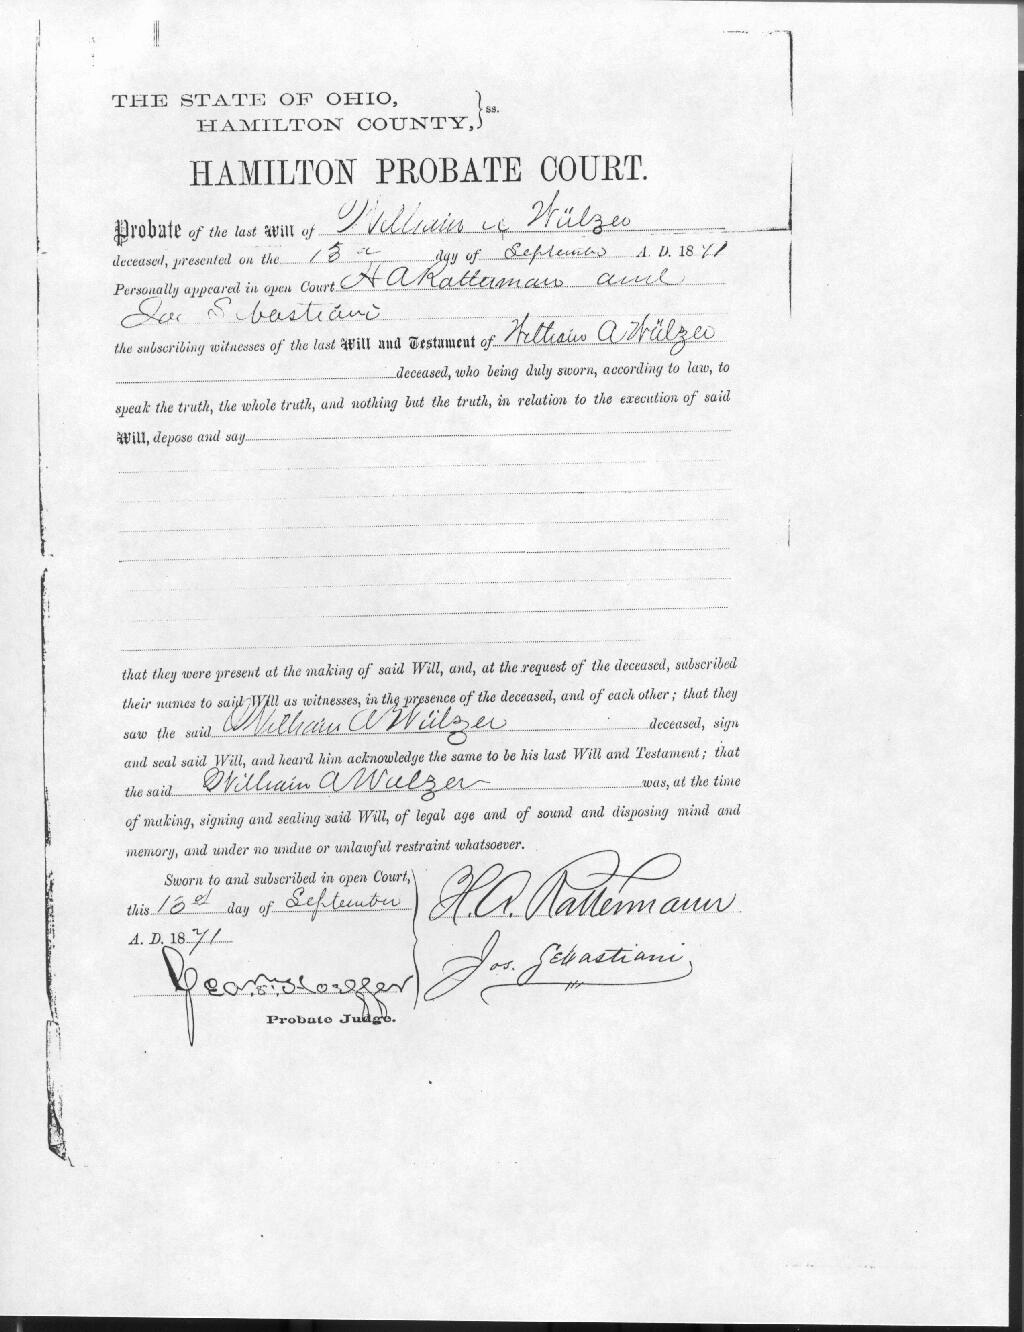 THE STATE OF OHIO,
HAMILTON COUNTY, } ss.
HAMILTON PROBATE COURT.
Probate of the last Will of William A Wülzer
deceased, presented on the 13 day of September A. D. 1871
Personally appeared in open Court H A Rattermann and
Jos Sebastiani
the subscribing witnesses of the last Will and Testament of William A Wülzer
deceased, who being duly sworn, according to law, to
speak the truth, the whole truth, and nothing but the truth, in relation to the execution of said
Will, depose and say
that they were present at the making of said Will, and, at the request of the deceased, subscribed
their names to said Will as witnesses, in the presence of the deceased, and of each other; that they
saw the said William A Wülzer deceased, sign
and seal said Will, and heard him acknowledge the same to be his last Will and Testament; that
the said William A Wulzer was, at the time
of making, signing and sealing said Will, of legal age and of sound and disposing mind and
memory, and under no undue or unlawful restraint whatsoever.
Sworn to and subscribed in open Court,
this 13 day of September
A. D. 1871
H. A. Rattermann
Jos. Sebastiani
Probate Judge.